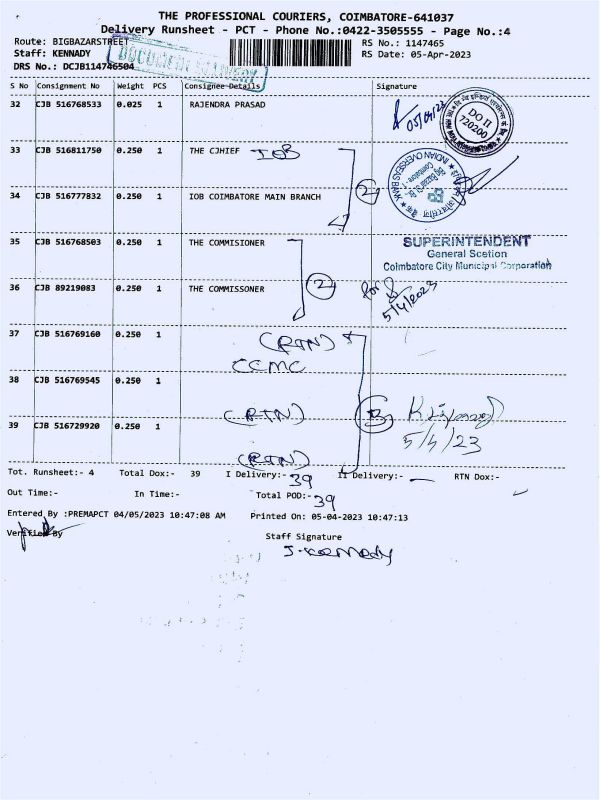 THE PROFESSIONAL COURIERS, COIMBATORE-641037
Delivery Runsheet - PCT - Phone No.:0422-3505555 - Page No.:4
Route: BIGBAZARSTREET
RS No.: 1147465
Staff: KENNADY
RS Date: 05-Apr-2023
DOCUMENT DELIVERY
DRS No.: DCJB114746504
S No Consignment No Weight PCS Consignee Details Signature
32 CJB 516768533 0.025 1 RAJENDRA PRASAD
05/04/23
DO II
720200
33 CJB 516811750 0.250 1 THE CJHIEF IOB
INDIAN OVERSEAS BANK
34 CJB 516777832 0.250 1 IOB COIMBATORE MAIN BRANCH
2
35 CJB 516768503 0.250 1 THE COMMISIONER
SUPERINTENDENT
General Scetion
Coimbatore City Municipal Corporation
36 CJB 89219083 0.250 1 THE COMMISSONER
2
for
5/4/2023
37 CJB 516769160 0.250 1
(RTN)
CCMC
38 CJB 516769545 0.250 1
(RTN)
39 CJB 516729920 0.250 1
5/4/23
(RTN)
Tot. Runsheet:- 4 Total Dox:- 39 I Delivery:- 39 II Delivery:- — RTN Dox:-
Out Time:- In Time:- Total POD:- 39
Entered By :PREMAPCT 04/05/2023 10:47:08 AM Printed On: 05-04-2023 10:47:13
Verified By
Staff Signature
J. Kennady